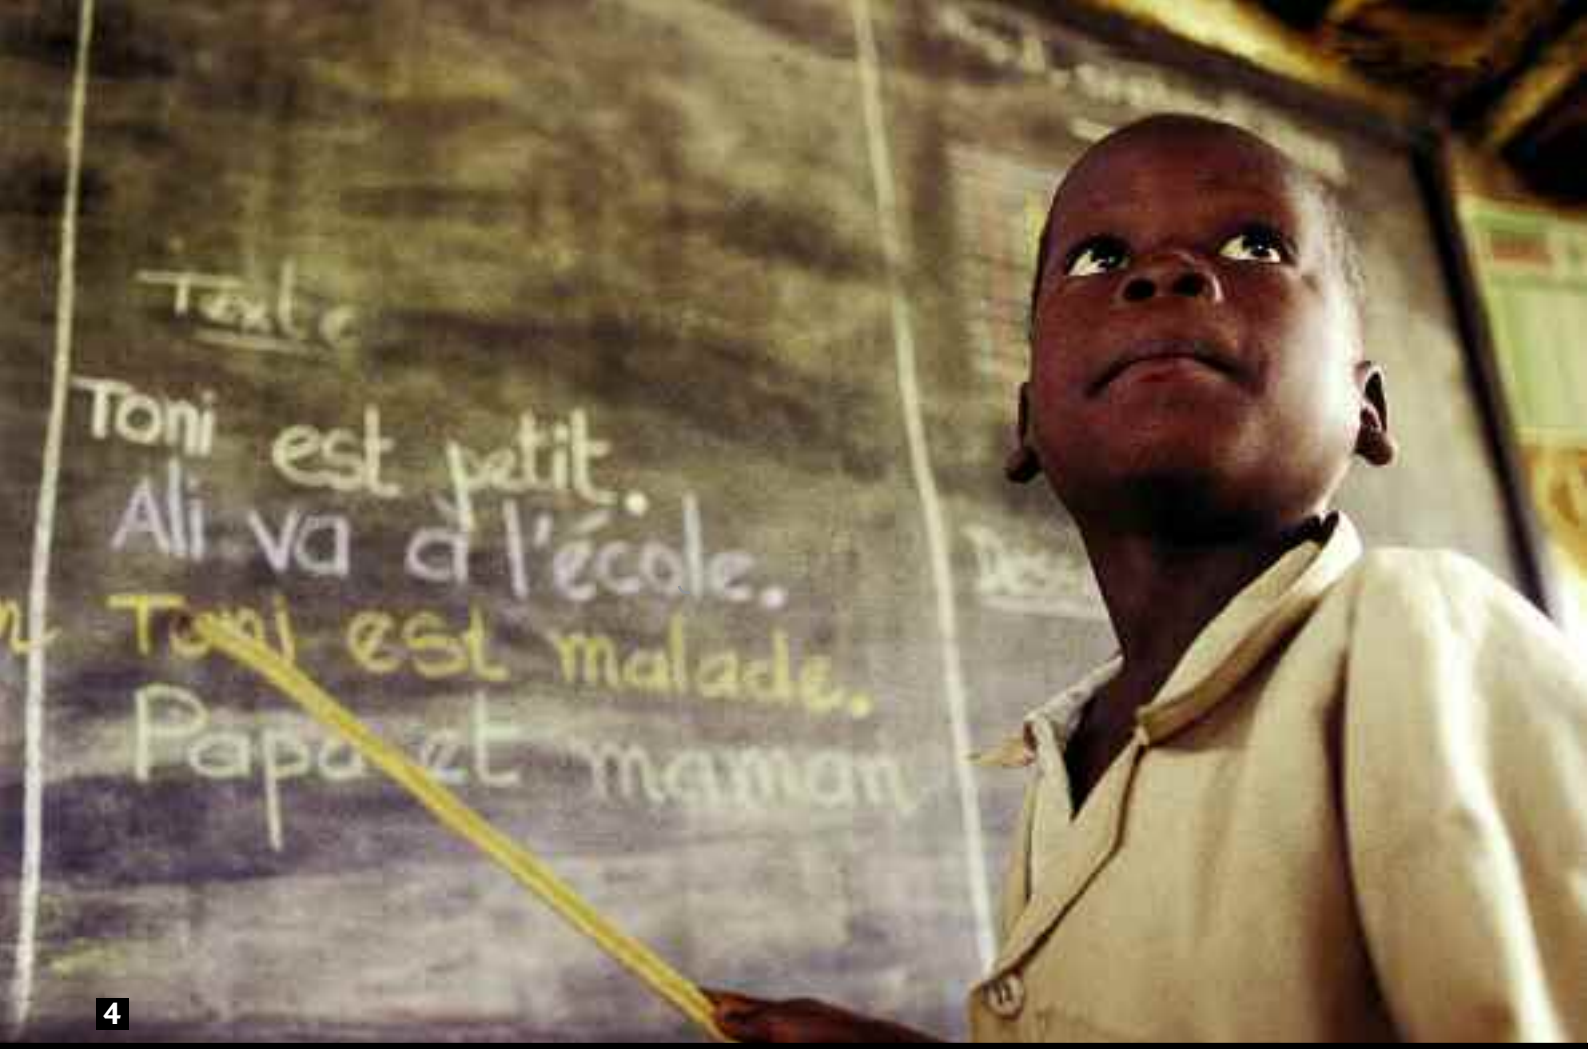 Texte
Toni est petit.
Ali va à l'école.
Toni est malade.
Papa et maman
4